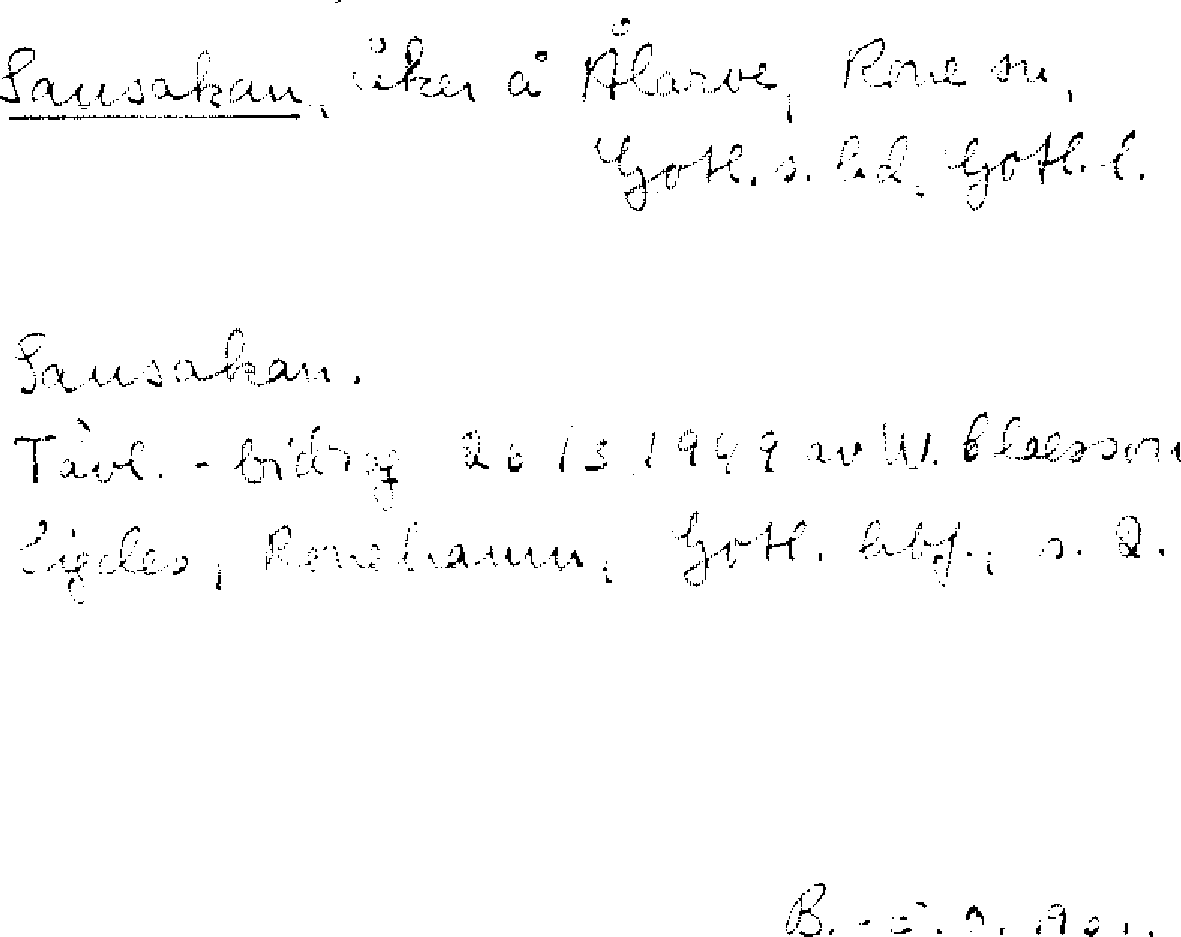 Sausakan, åker å Ålarve, Rone sn,
Gotl. s. hd, Gotl. l.
Sausakan.
Tävl.-bidrag 20/3 1949 av W. Claesson
Ligdes, Ronehamn, Gotl. hbf., s. 2.
B.